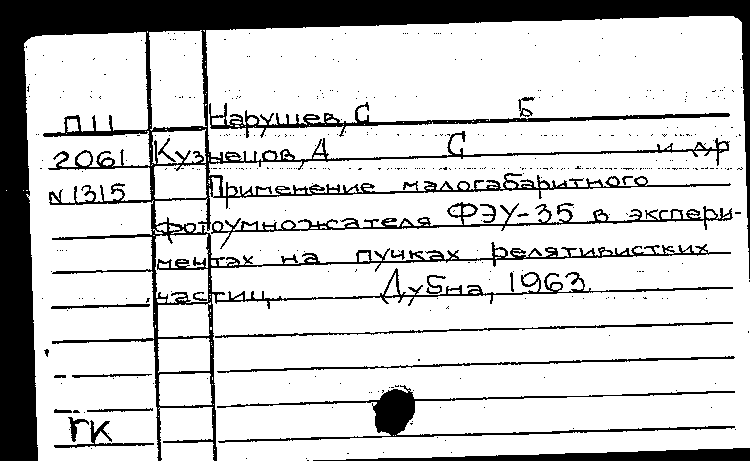 П11 Нарушев, С Б
2061 Кузнецов, А С и др
N 1315 Применение малогабаритного
фотоумножателя ФЭУ-35 в экспери-
ментах на пучках релятивистких
частиц. Дубна, 1963.
ГК